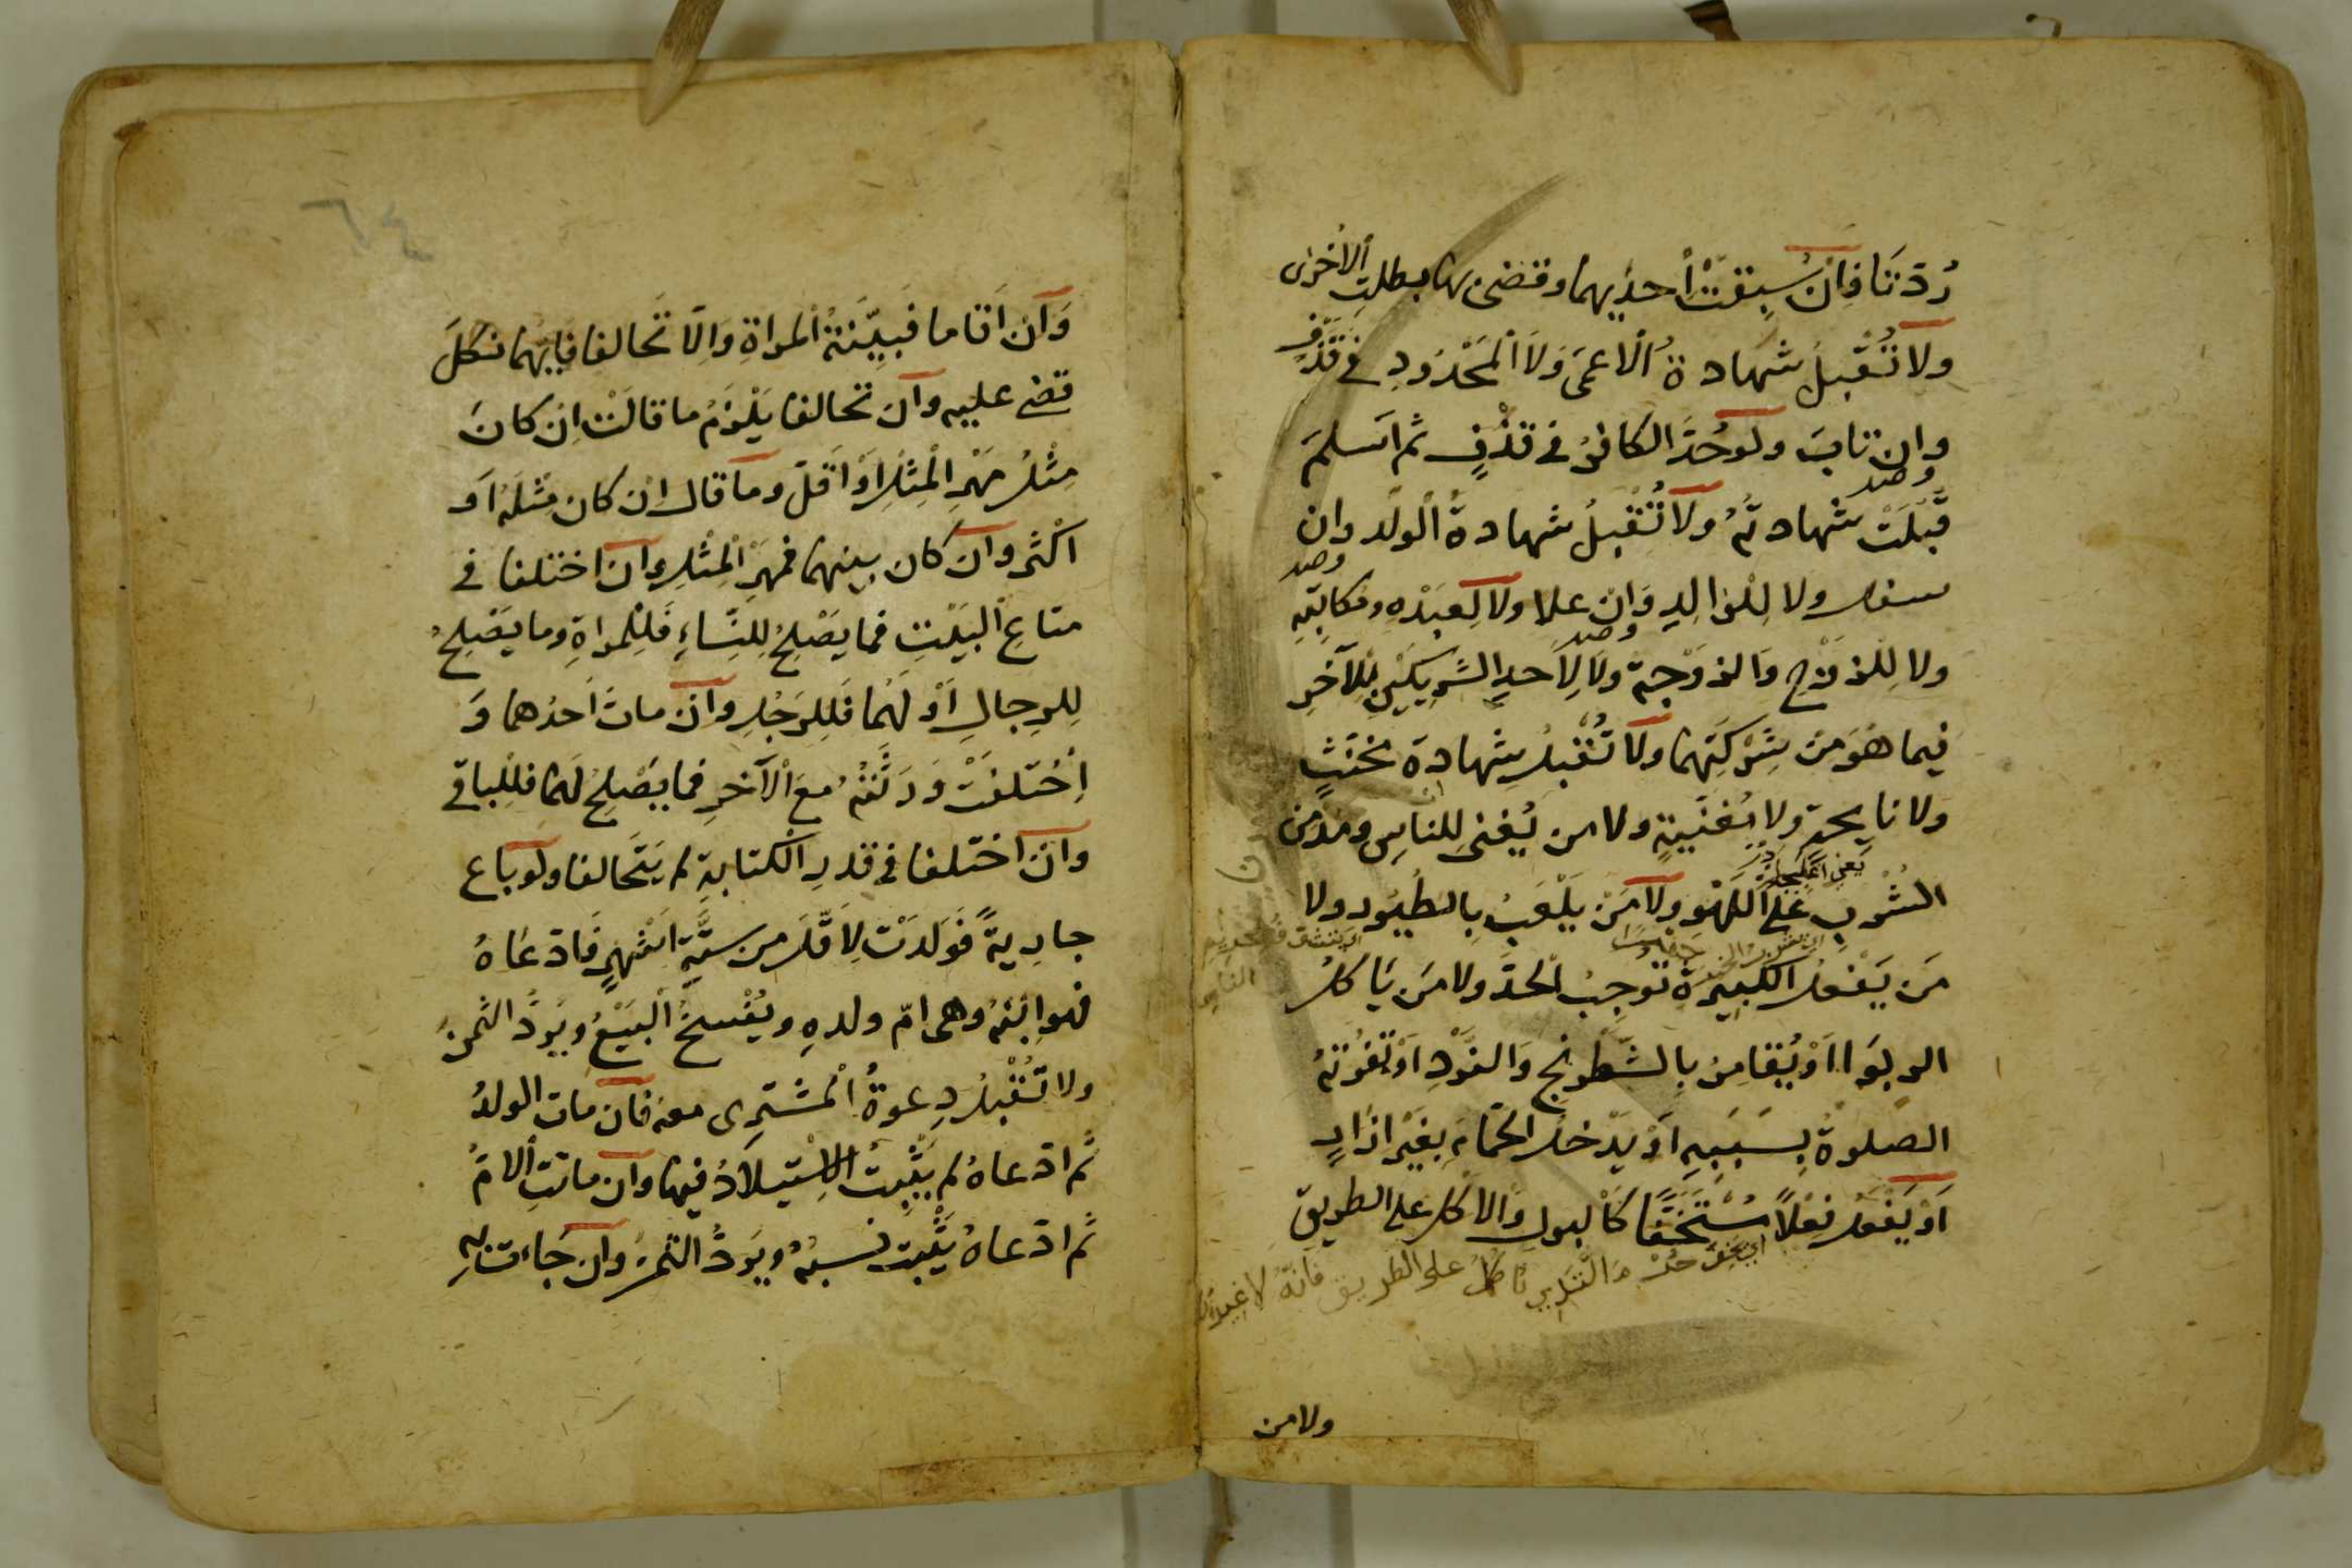 رُدّتَا فاِنْ سبقتْ اُحديهما وقضى بها بطلت الاُخرى
ولا تُقْبلُ شهادةُ الْاعمَى وَلَا الْمَحْدُودِ فى قَذْفٍ
وان تابَ ولوحُدَّ الكافرُ فى قذْفٍ ثم اسلمَ
قُبّلَتْ شهادتهُ ولا تُقْبلُ شهادةُ الْولَد وان
سفل ولا لِلْوالدِ وَانْ علا ولا لِعبْدهِ ومكاتبهِ
ولا لِلْزوْج وَالزوْجةِ ولا لِاَحدِ الشريكَيْنِ لِلْآخرِ
فيما هُوَ منْ شِرْكَتِهما ولا تُقْبلُ شهادة مخنّثٍ
ولا نايحة ولا مُغنّيةٍ ولا من يُغنى لِلناسِ ومدْمن
يعنى
الشُرْبِ عَلَى اللّهْوِ ولا مَنْ يلْعَبُ بِالطُيُور ولا
مَن يَفْعلُ الكبيرة تُوجبُ الْحدَّ ولا مَن يَاكلُ
الربوَا اَوْ يُقامِرُ بِالشّطرنجِ وَالنّرْدِ اوْ تَفُوتهُ
الصلوةُ بِسَببهِ اَوْ يَدْخلُ الحمّامَ بغَيْر اِزَارٍ
اَوْ يَفْعلُ فِعْلًا مُسْتَخفًّا كَالبولِ وَالاَكل على الطريق
على الطريق فانّه لا
ولا من
٦٤
وَاَنْ اَقاما فَبَيّنَتُ المراةِ وَاِلّا تَحالفا فَايّهما نكلَ
قضى عليه وان تحالفا يَلْزَمُ ما قالَتْ اِنْ كانَ
مِثْلُ مَهْرِ الْمِثْلِ اَوْ اَقلّ وما قال ان كان مثلَهُ اَو
اكْثر وان كان بينهما فمَهْرُ الْمِثْلِ وان اختلفا فى
متاعِ الْبَيْتِ فما يَصْلحُ لِلنّساءِ فَلِلْمراةِ وما يَصْلحُ
لِلرجالِ اَوْ لَهُما فَلِلرَجُلِ وان ماتَ اَحدُهما وَ
اِخْتلفَتْ وَرَثَتُهُ معَ الْآخرِ فما يَصْلحُ لَهما فلِلْباقى
وان اختلفا فى قدرِ الكتابةِ لم يَتَحالفا ولو باع
جاريةً فَوَلَدَتْ لِاَقَلّ من ستّةِ اَشْهرٍ فَادعَاهُ
فهو ابْنُهُ وهى امّ ولدهِ ويُفْسخُ الْبَيْعُ ويُرَدُّ الثمنُ
ولا تُقْبلُ دِعوةُ الْمشترِى معه فان مات الولدُ
ثم ادّعاهُ لم يَثْبتُ الاِسْتِيلادُ فيها وان ماتتِ الامُّ
ثم ادّعاهُ يَثْبت نسبُهُ ويَردُّ الثمنُ وان جَاءت به